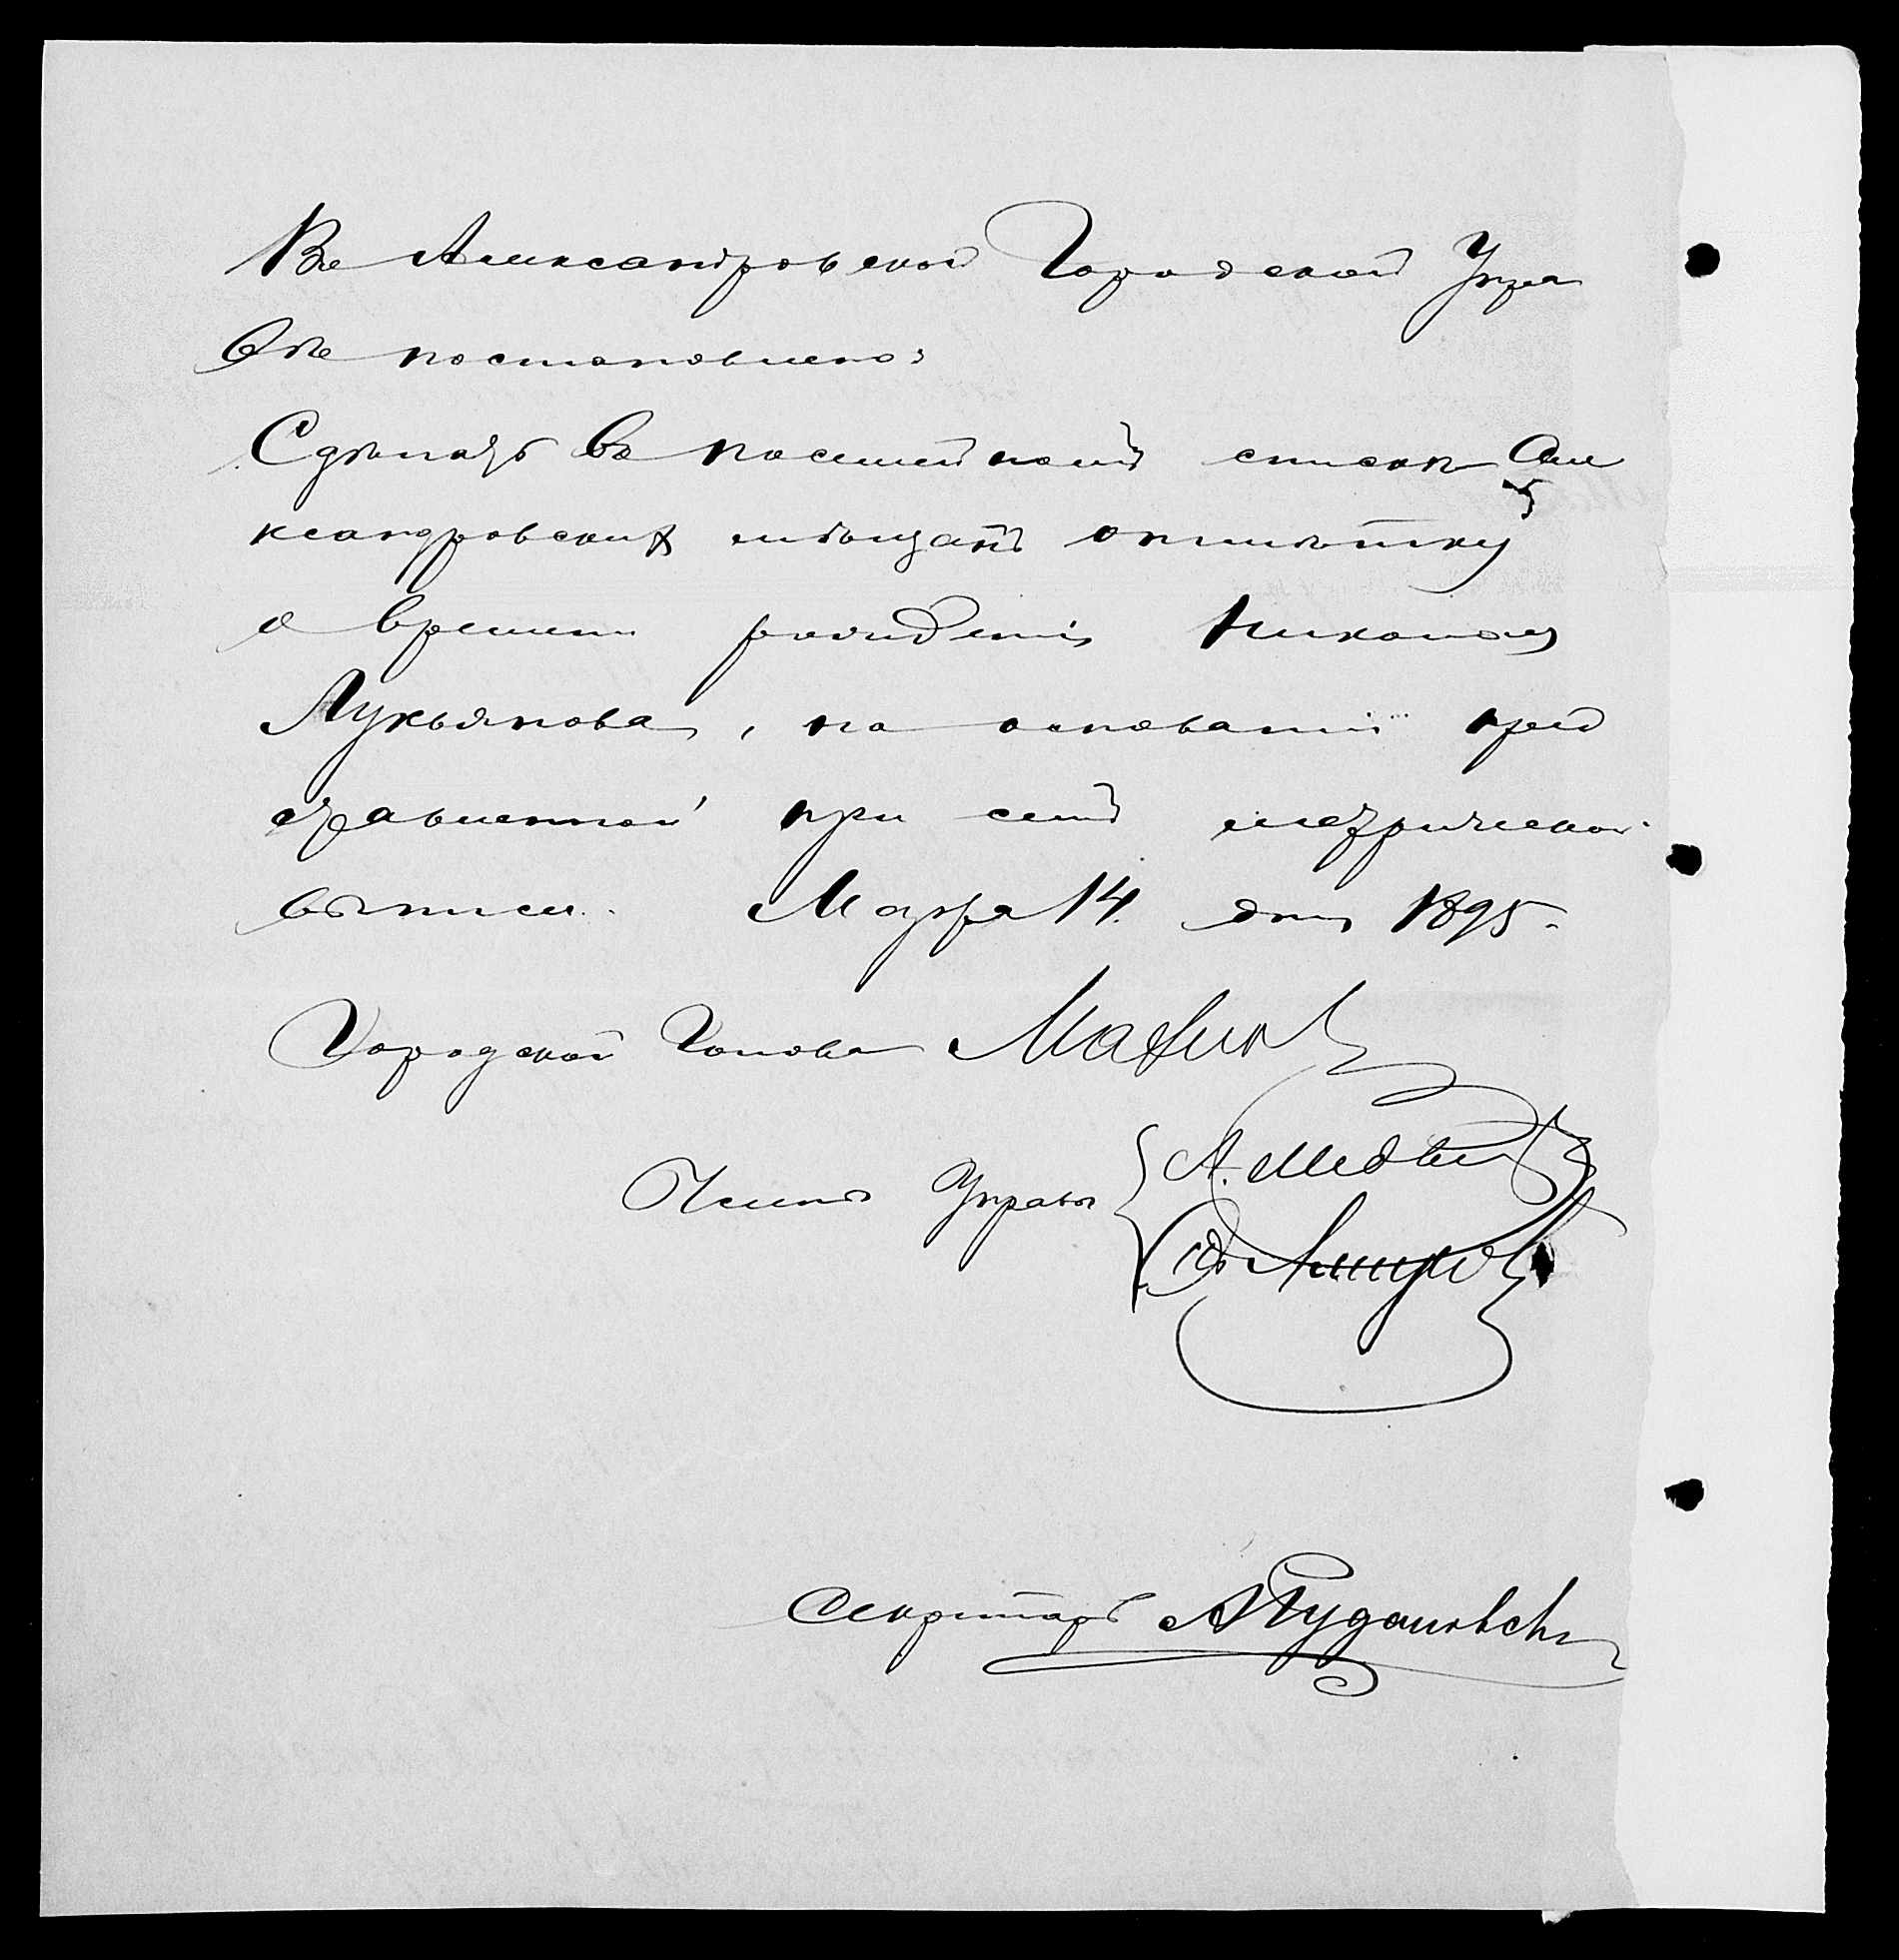 Въ Александровской Городской Упра
вѣ постановлено:
Сдѣлать въ посемейномъ спискѣ Але
ксандровскихъ мѣщанъ отмѣтку
о времени рожденія Николая
Лукьянова, на основаніи пред
ставленной при семъ метрической
выписи. Марта 14 дня 1895.
Городской Голова
Члены Управы А. Медвѣ
Секретарь